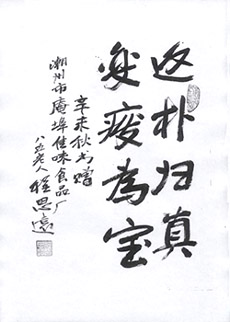 返朴归真
变废为宝
辛未秋书赠
潮州市庵埠佳味食品厂
八五老人程思远